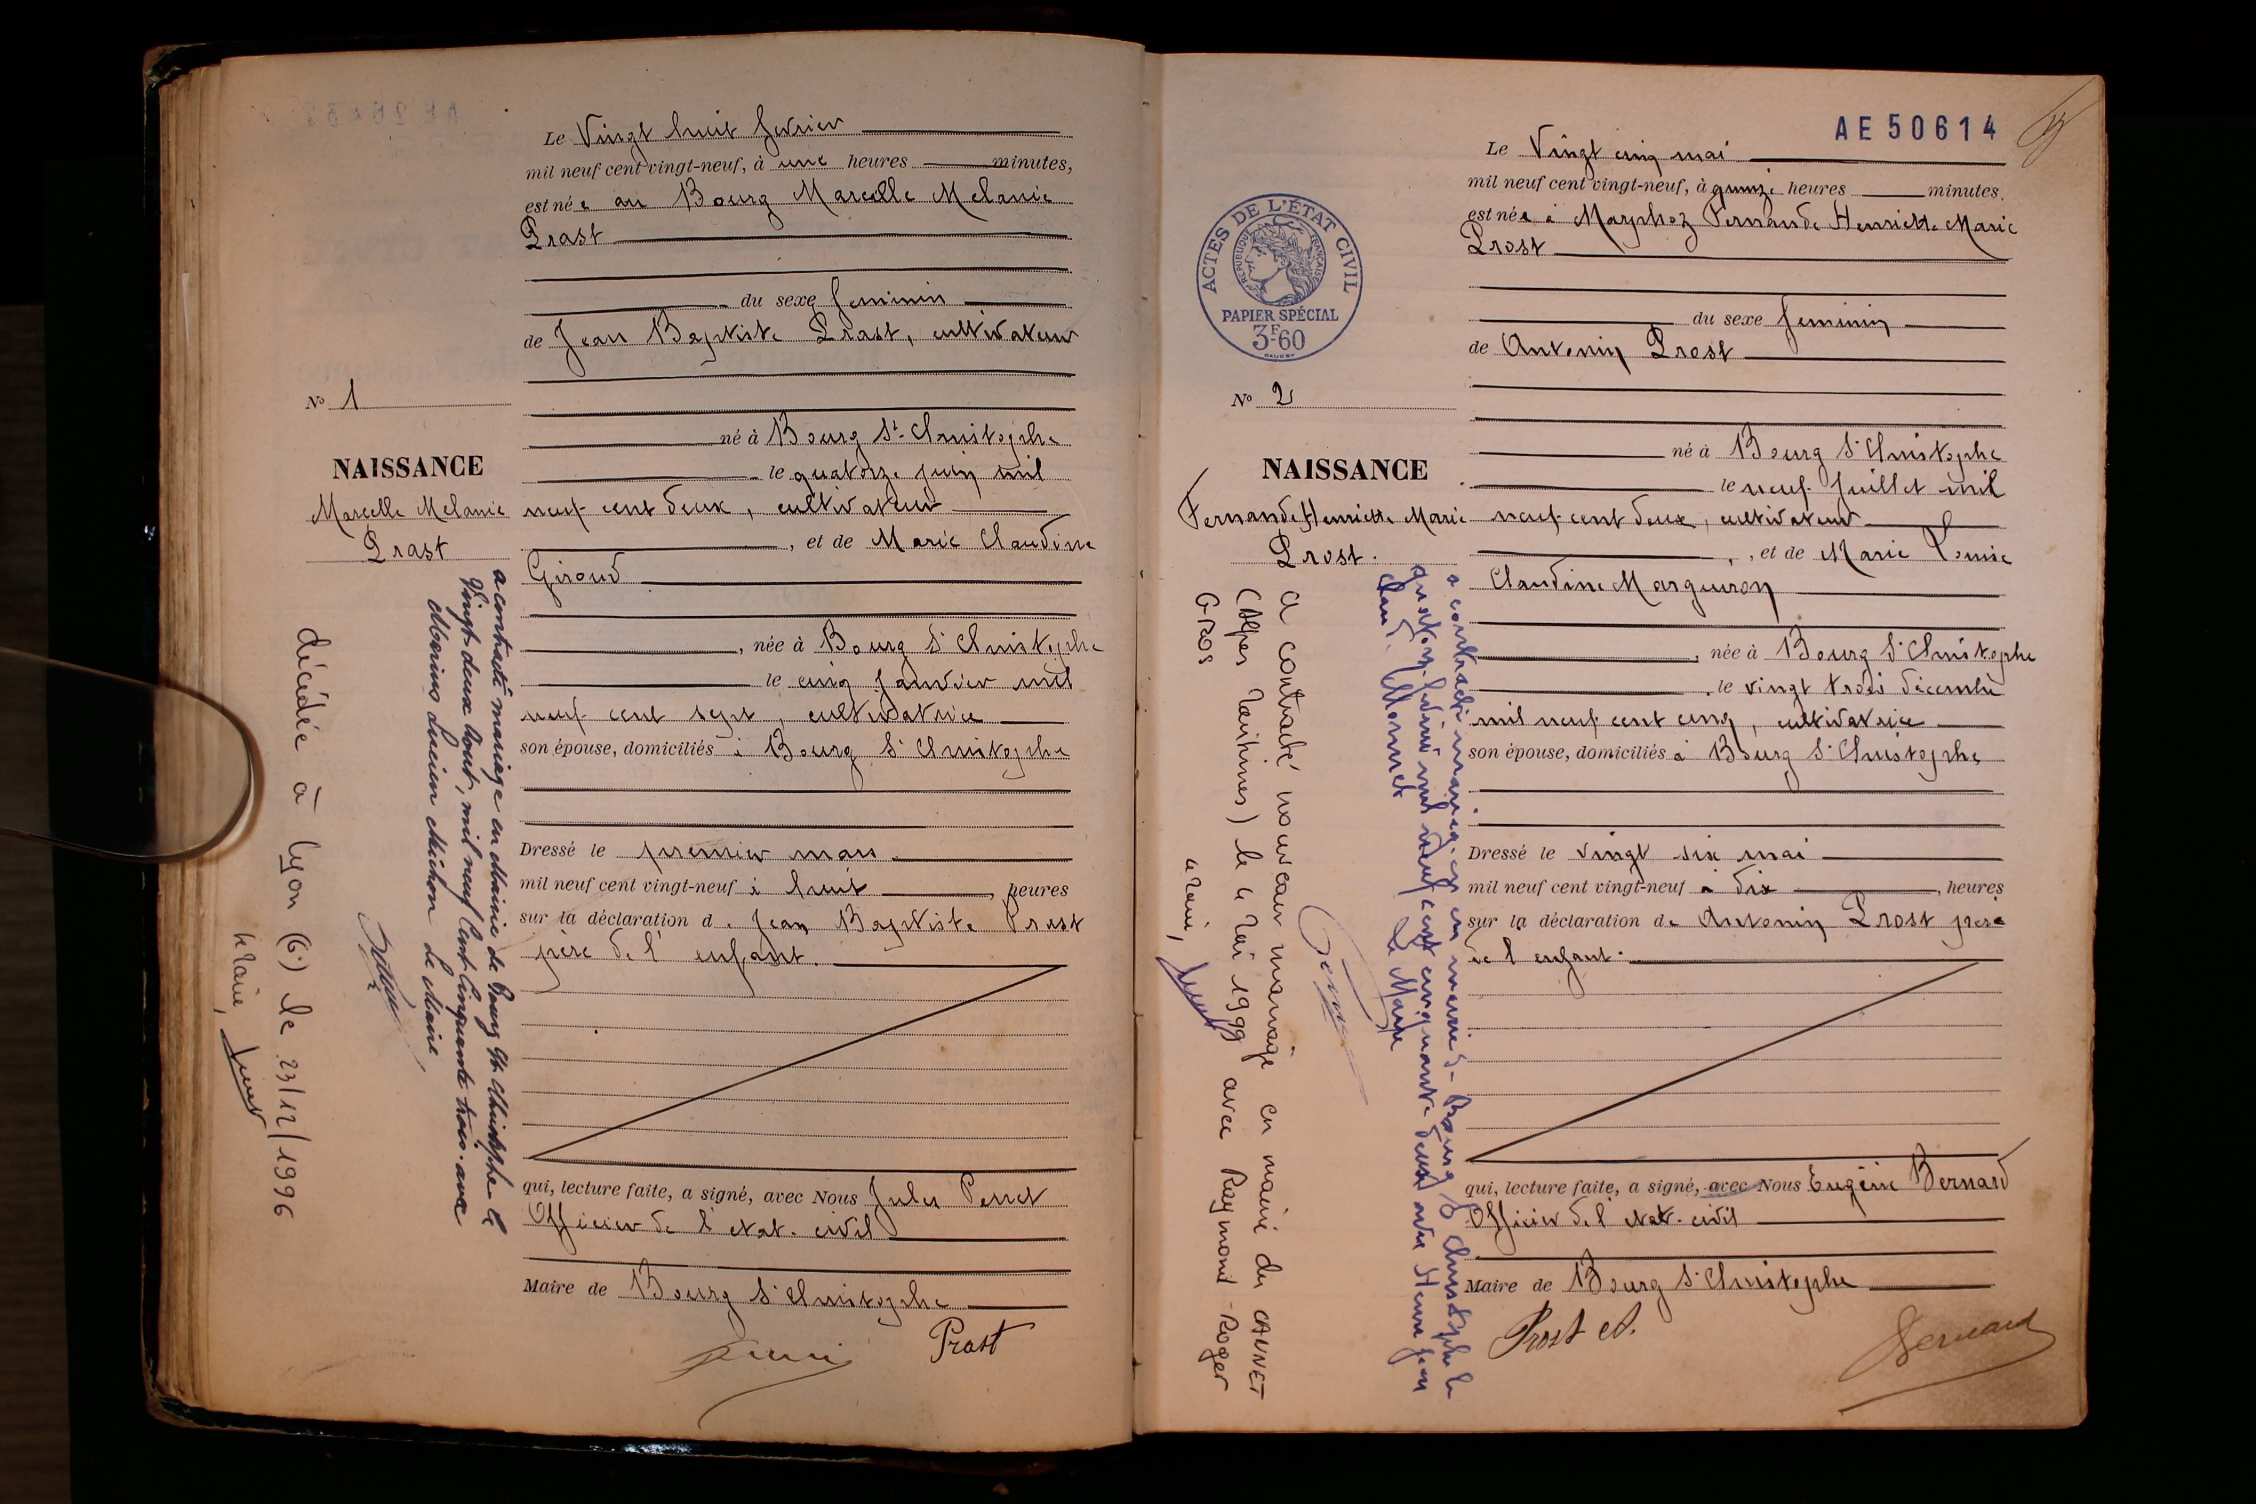 Le Vingt huit fevrier
mil neuf cent vingt-neuf, à une heures minutes,
est née au Bourg Marcelle Melanie
Prast
du sexe feminin
de Jean Baptiste Prast, cultivateur
né à Bourg St Christophe
le quatorze juin mil
neuf cent deux, cultivateur
, et de Marie Claudine
Giroud
, née à Bourg St Christophe
le cinq janvier mil
neuf cent sept, cultivatrice
son épouse, domiciliés à Bourg St Christophe
Dressé le premier mars
mil neuf cent vingt-neuf à huit, heures
sur la déclaration de Jean Baptiste Prast
père de l'enfant.
qui, lecture faite, a signé, avec Nous Jules Perret
Officier de l'etat civil
Maire de Bourg St Christophe
Prast
No 1
NAISSANCE
Marcelle Melanie
Prast
a contracté mariage en Mairie de Bourg St Christophe le
Vingt-deux août, mil neuf cent cinquante trois avec
Marius Lucien Michon Le Maire
décédée à Lyon (6e) le 23/12/1996
le Maire,
AE 50614
ACTES DE L'ÉTAT CIVIL
RÉPUBLIQUE FRANÇAISE
PAPIER SPÉCIAL
3F60
Le Vingt cinq mai
mil neuf cent vingt-neuf, à quinze heures minutes.
est née à Marphoz Fernande Henriette Marie
Prost
du sexe feminin
de Antonin Prost
né à Bourg St Christophe
le neuf juillet mil
neuf cent deux, cultivateur
, et de Marie Louise
Claudine Marguiron
, née à Bourg St Christophe
, le vingt trois décembre
mil neuf cent cinq, cultivatrice
son épouse, domiciliés à Bourg St Christophe
Dressé le vingt six mai
mil neuf cent vingt-neuf à dix, heures
sur la déclaration de Antonin Prost père
de l'enfant.
qui, lecture faite, a signé, avec Nous Eugène Bernard
Officier de l'etat civil
Maire de Bourg St Christophe
Prost A.
Bernard
No 2
NAISSANCE
Fernande Henriette Marie
Prost.
a contracté mariage en mairie de Bourg St Christophe le
quatorze février mil neuf cent cinquante deux avec Henri Jean
Claude Monnet Le Maire
a contracté nouveau mariage en mairie du CANNET
(Alpes Maritimes) le 4 Mai 1999 avec Raymond-Roger
GROS
le Maire,